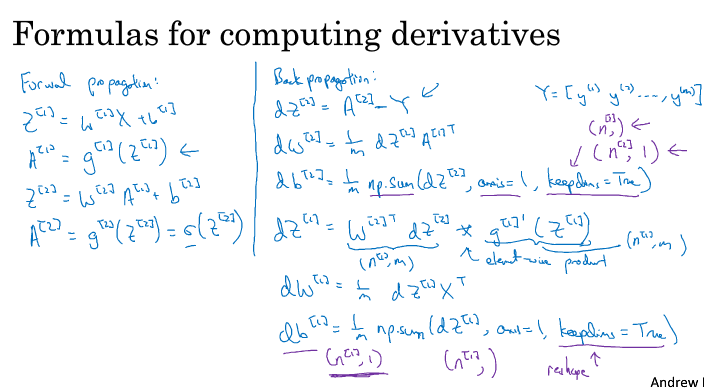 Formulas for computing derivatives
Forward propagation:
Z^[1] = W^[1]X + b^[1]
A^[1] = g^[1](Z^[1]) ←
Z^[2] = W^[2] A^[1] + b^[2]
A^[2] = g^[2](Z^[2]) = σ(Z^[2])
Back propagation:
dZ^[2] = A^[2] - Y ↙
dW^[2] = 1/m dZ^[2] A^[1]T
db^[2] = 1/m np.sum(dZ^[2], axis=1, keepdims=True)
dZ^[1] = W^[2]T dZ^[2] * g^[1]'(Z^[1])
(n^[1],m) ↑ element-wise product (n^[1],m)
dW^[1] = 1/m dZ^[1] X^T
db^[1] = 1/m np.sum(dZ^[1], axis=1, keepdims=True)
(n^[1],1) (n^[1],) reshape ↑
Y = [y^(1) y^(2) ...., y^(m)]
(n^[2],) ←
↙ (n^[2], 1) ←
Andrew